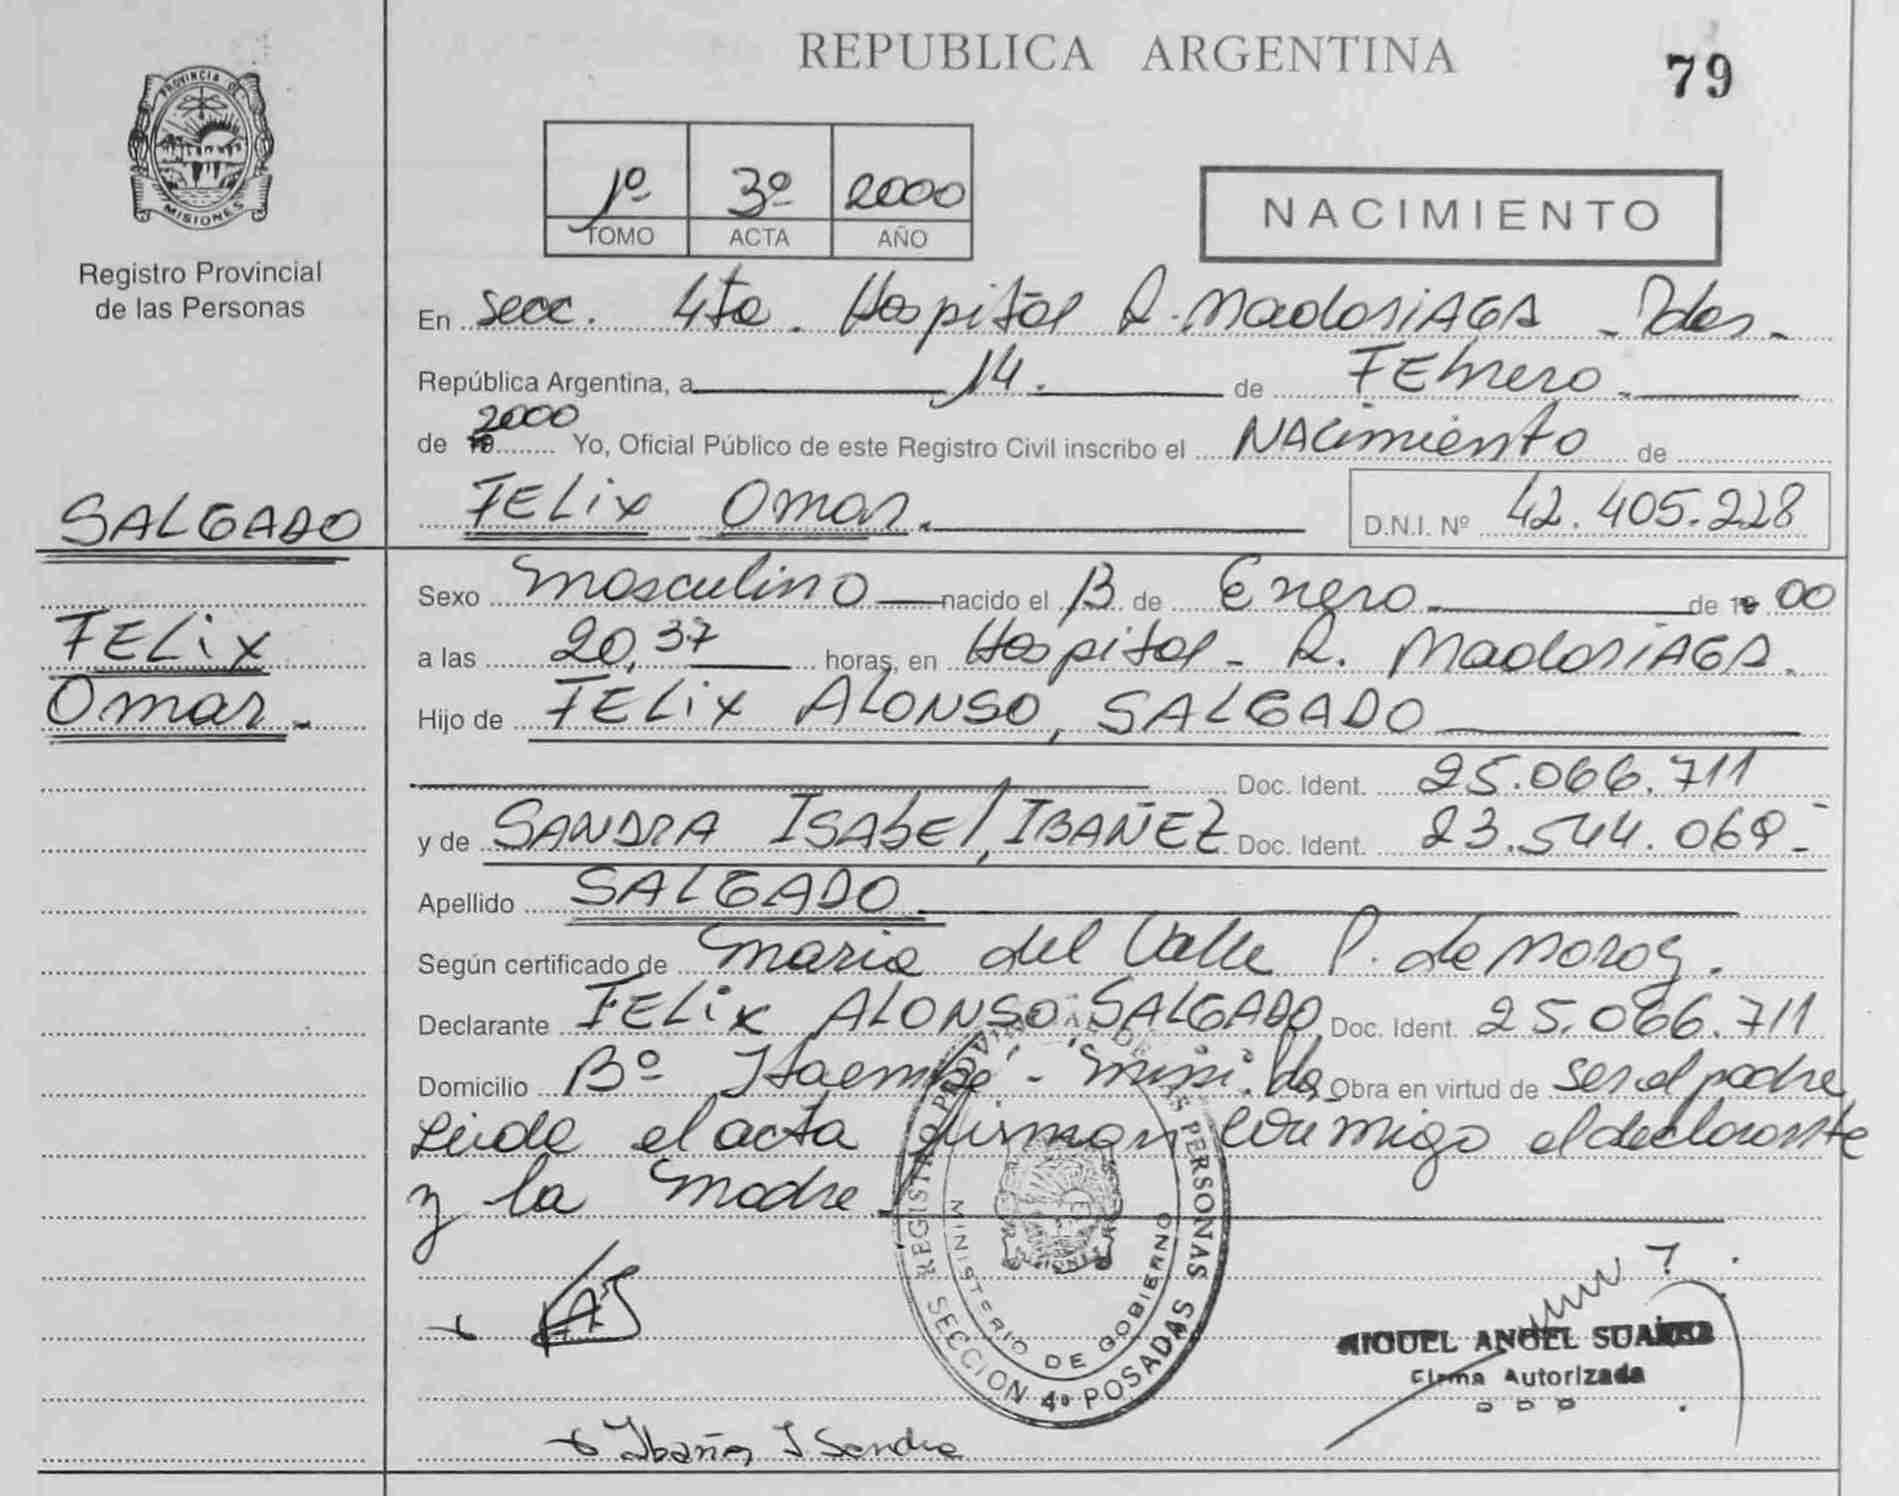 REPUBLICA ARGENTINA
79
PROVINCIA DE
MISIONES
Registro Provincial
de las Personas
1º 3º 2000
TOMO ACTA AÑO
NACIMIENTO
En Secc. 4ta. Hospital R. MadariAGA - Pdas.
República Argentina, a 14. de FEbrero.
de 19 2000 Yo, Oficial Público de este Registro Civil inscribo el NAcimiento de
FELix Omar. D.N.I. Nº 42.405.228
SALGADO
FELix
Omar.
Sexo masculino nacido el 13 de Enero. de 19 00
a las 20,37 horas, en Hospital - R. MadariAGA.
Hijo de FELix ALONSO, SALGADO
Doc. Ident. 25.066.711
y de SANDRA ISAbEl, IBAÑEZ Doc. Ident. 23.544.069-
Apellido SALGADO
Según certificado de maria del Valle P. de
Declarante FELix ALONSO SALGADO Doc. Ident. 25.066.711
Domicilio Bº Itaembé - mini. Pdas Obra en virtud de ser el padre
Leida el acta firman conmigo el declarante
y la madre
REGISTRO PROVINCIAL DE LAS PERSONAS
MINISTERIO DE GOBIERNO
SECCION 4º POSADAS
MIGUEL ANGEL SUAREZ
Firma Autorizada
Ibañez I Sandra